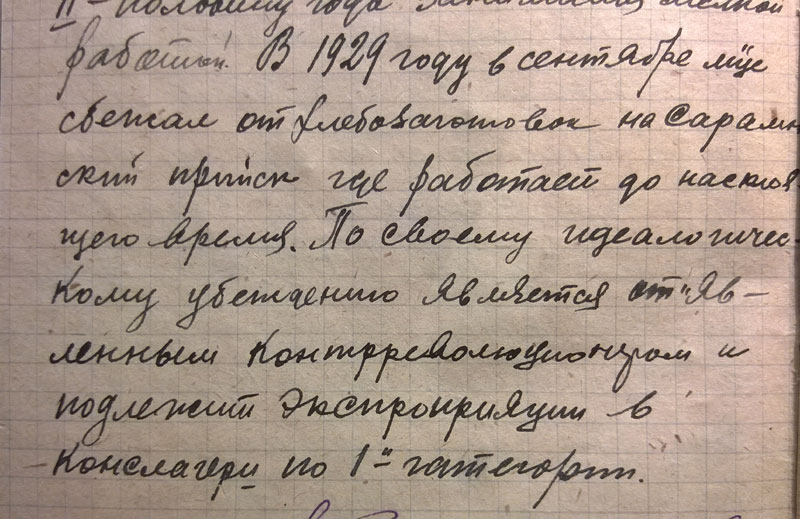 II - половину года занимался мелкой
работой. В 1929 году в сентябре м-це
сбежал от хлебозаготовок на Сарали
ский прииск где работает до настоя
щего время. По своему идеалогичес-
кому убеждению является от"яв-
ленным контрреволюционером и
подлежит экспроприяции в
Конслагери по 1-й категории.